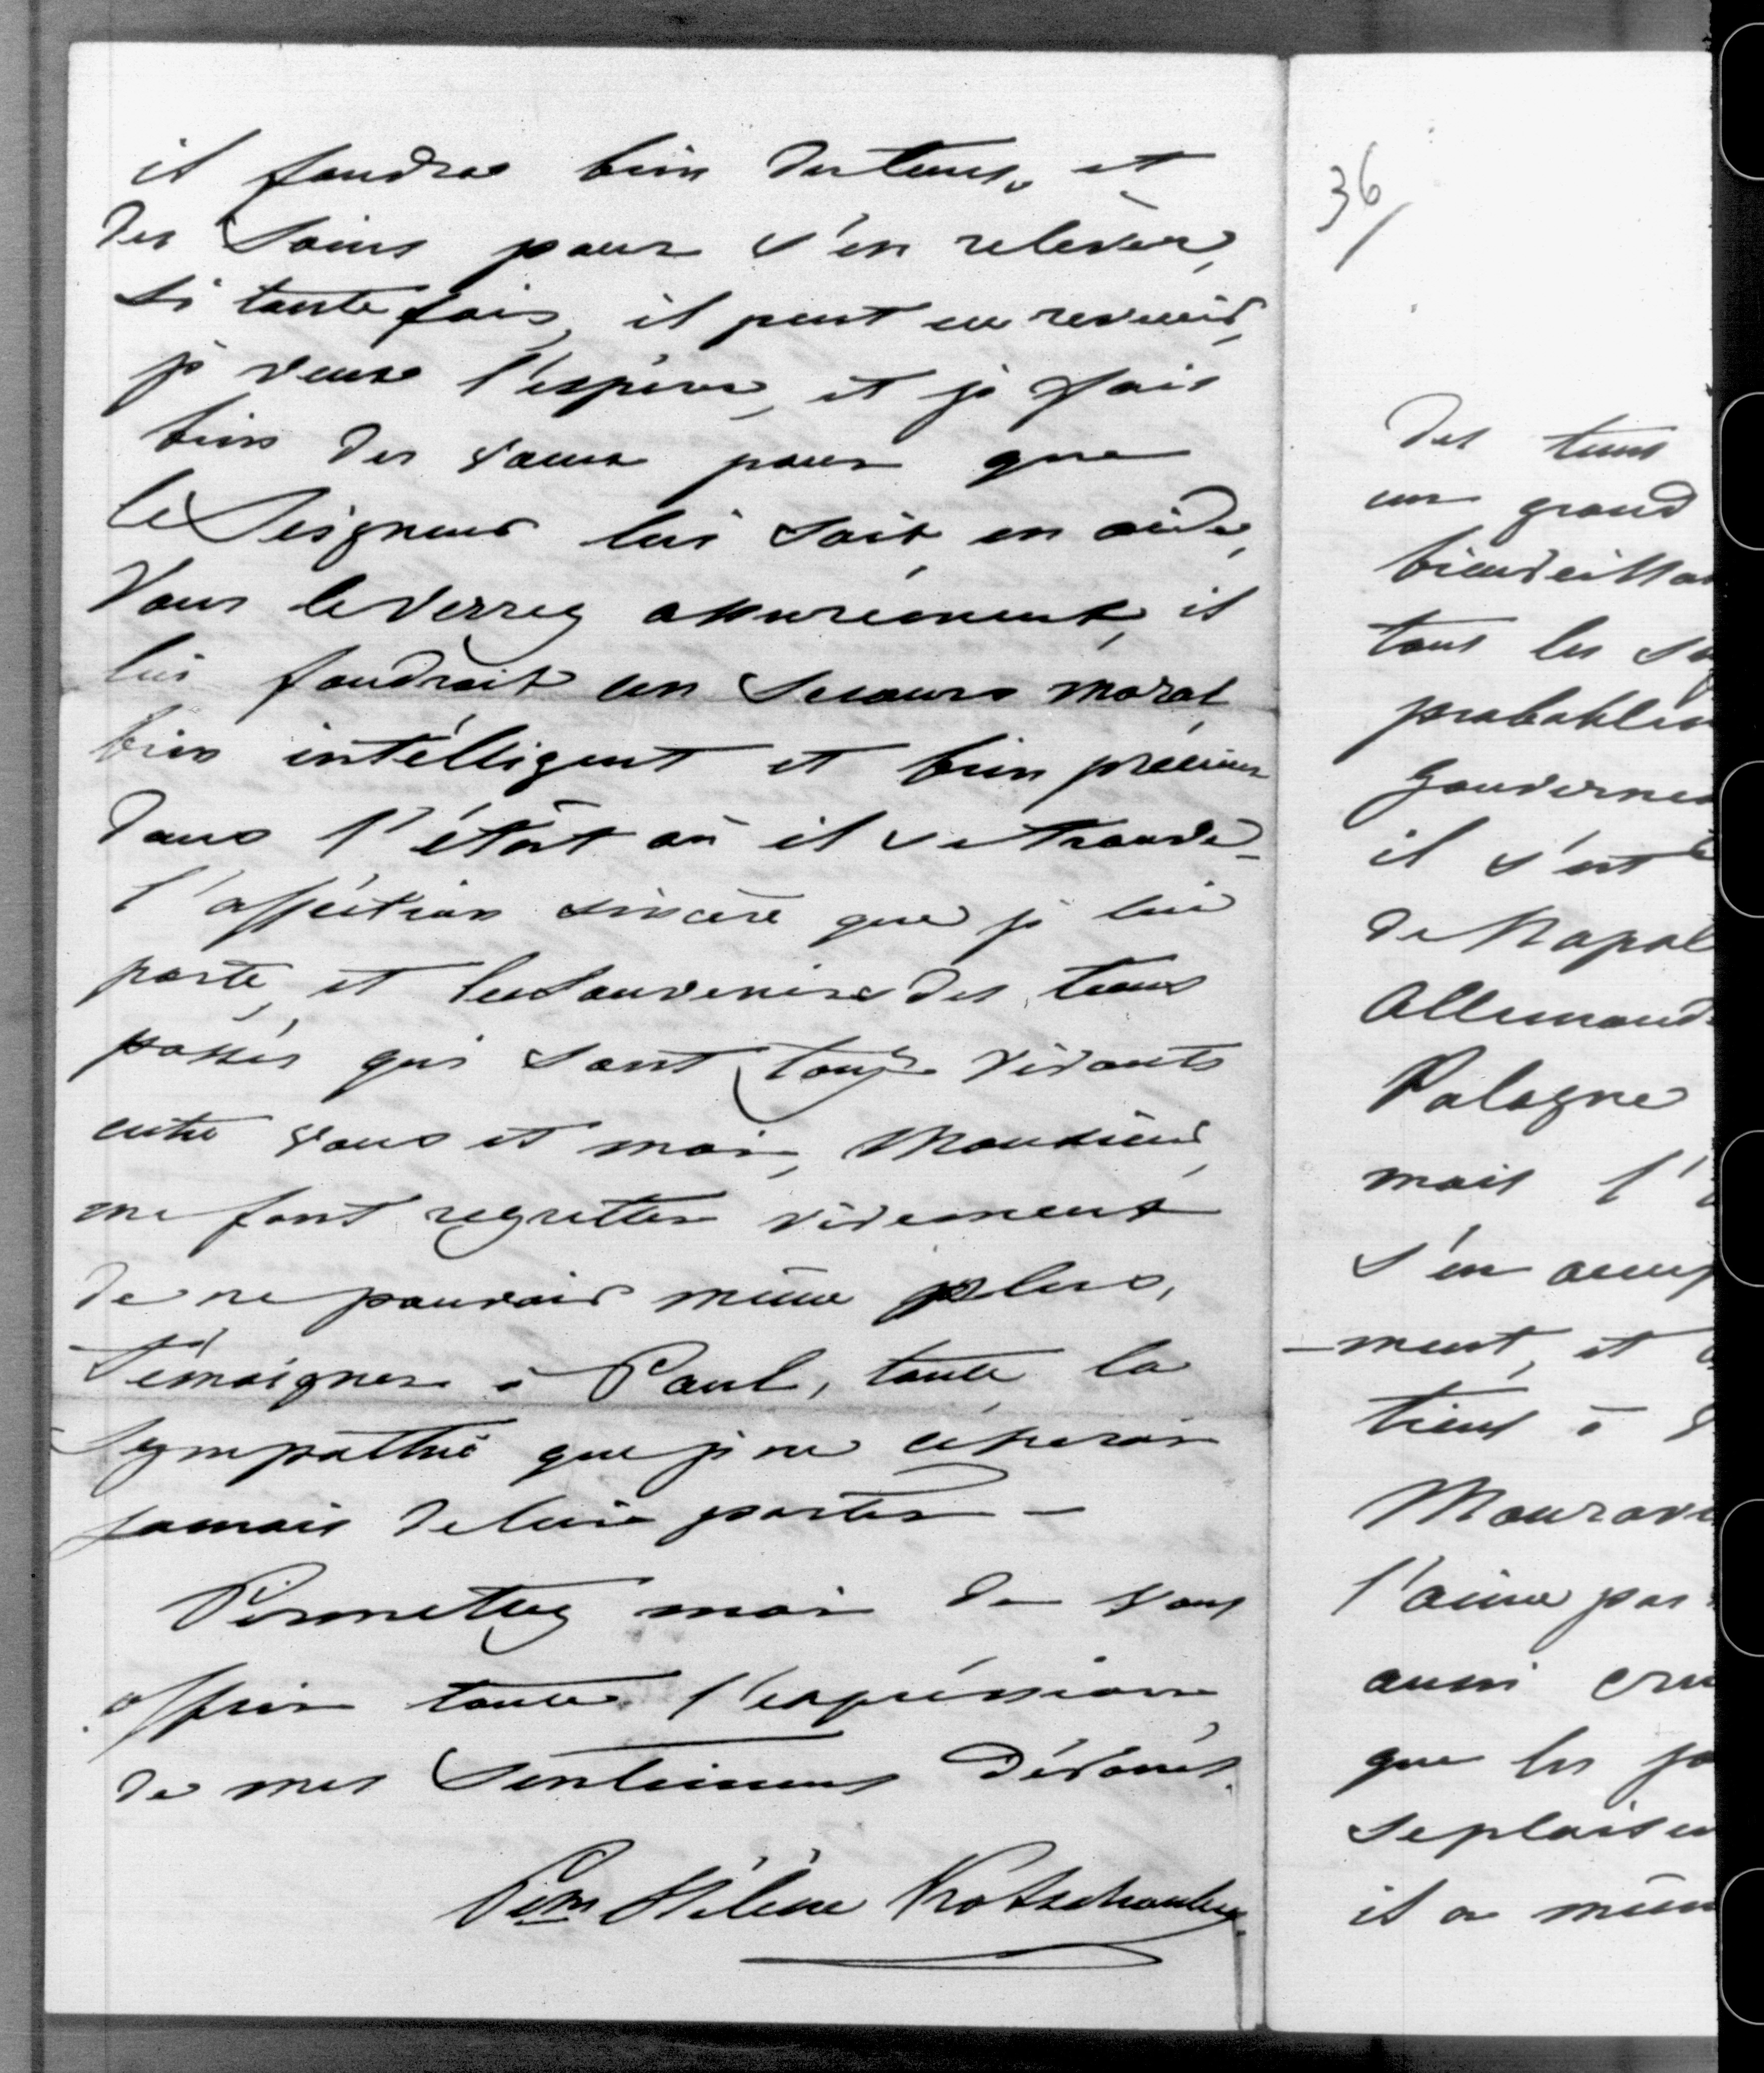 il faudra bien du tems, et
des Soins pour s'en relèver,
si toute fois, il peut en revenir,
je veux l'espérer, et je fais
bien des vœux pour que
le Seigneur lui soit en aide,
Vous le verrez assurément, il
lui faudrait un Secours moral
bien intélligent et bien précieux
dans l'état où il se trouve –
l'afféction sincère que je lui
porte, et les souvenirs des tems
passés qui sont touj^rs vivants
entre vous et moi, Monsieur,
me font regretter vivement
de ne pouvoir même plus,
témoigner à Paul, toute la
Sympathie que je ne cesserai
jamais de lui porter –
Permettez moi de vous
offrir toute l'expréssion
de mes Sentimens dévoués.
P^sse Hélène Kotschoubey
36/
des tems
un grand
bienveillan
tous les
probablem
Gouverne
il s'est
de Napol
Allemand
Pologne
mais l'
s'en occup
–ment, et
tient à
Mouravi
l'aime pas
aussi cru
que les jo
se plaisen
il a mêm